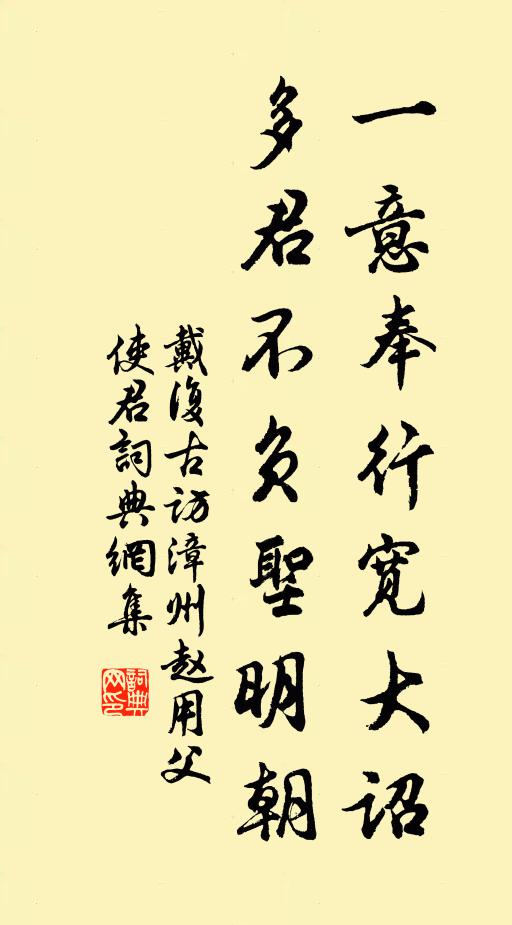 一意奉行宽大诏
多君不负聖明朝
戴復古访漳州赵用父
使君詞典網集
詞典网印